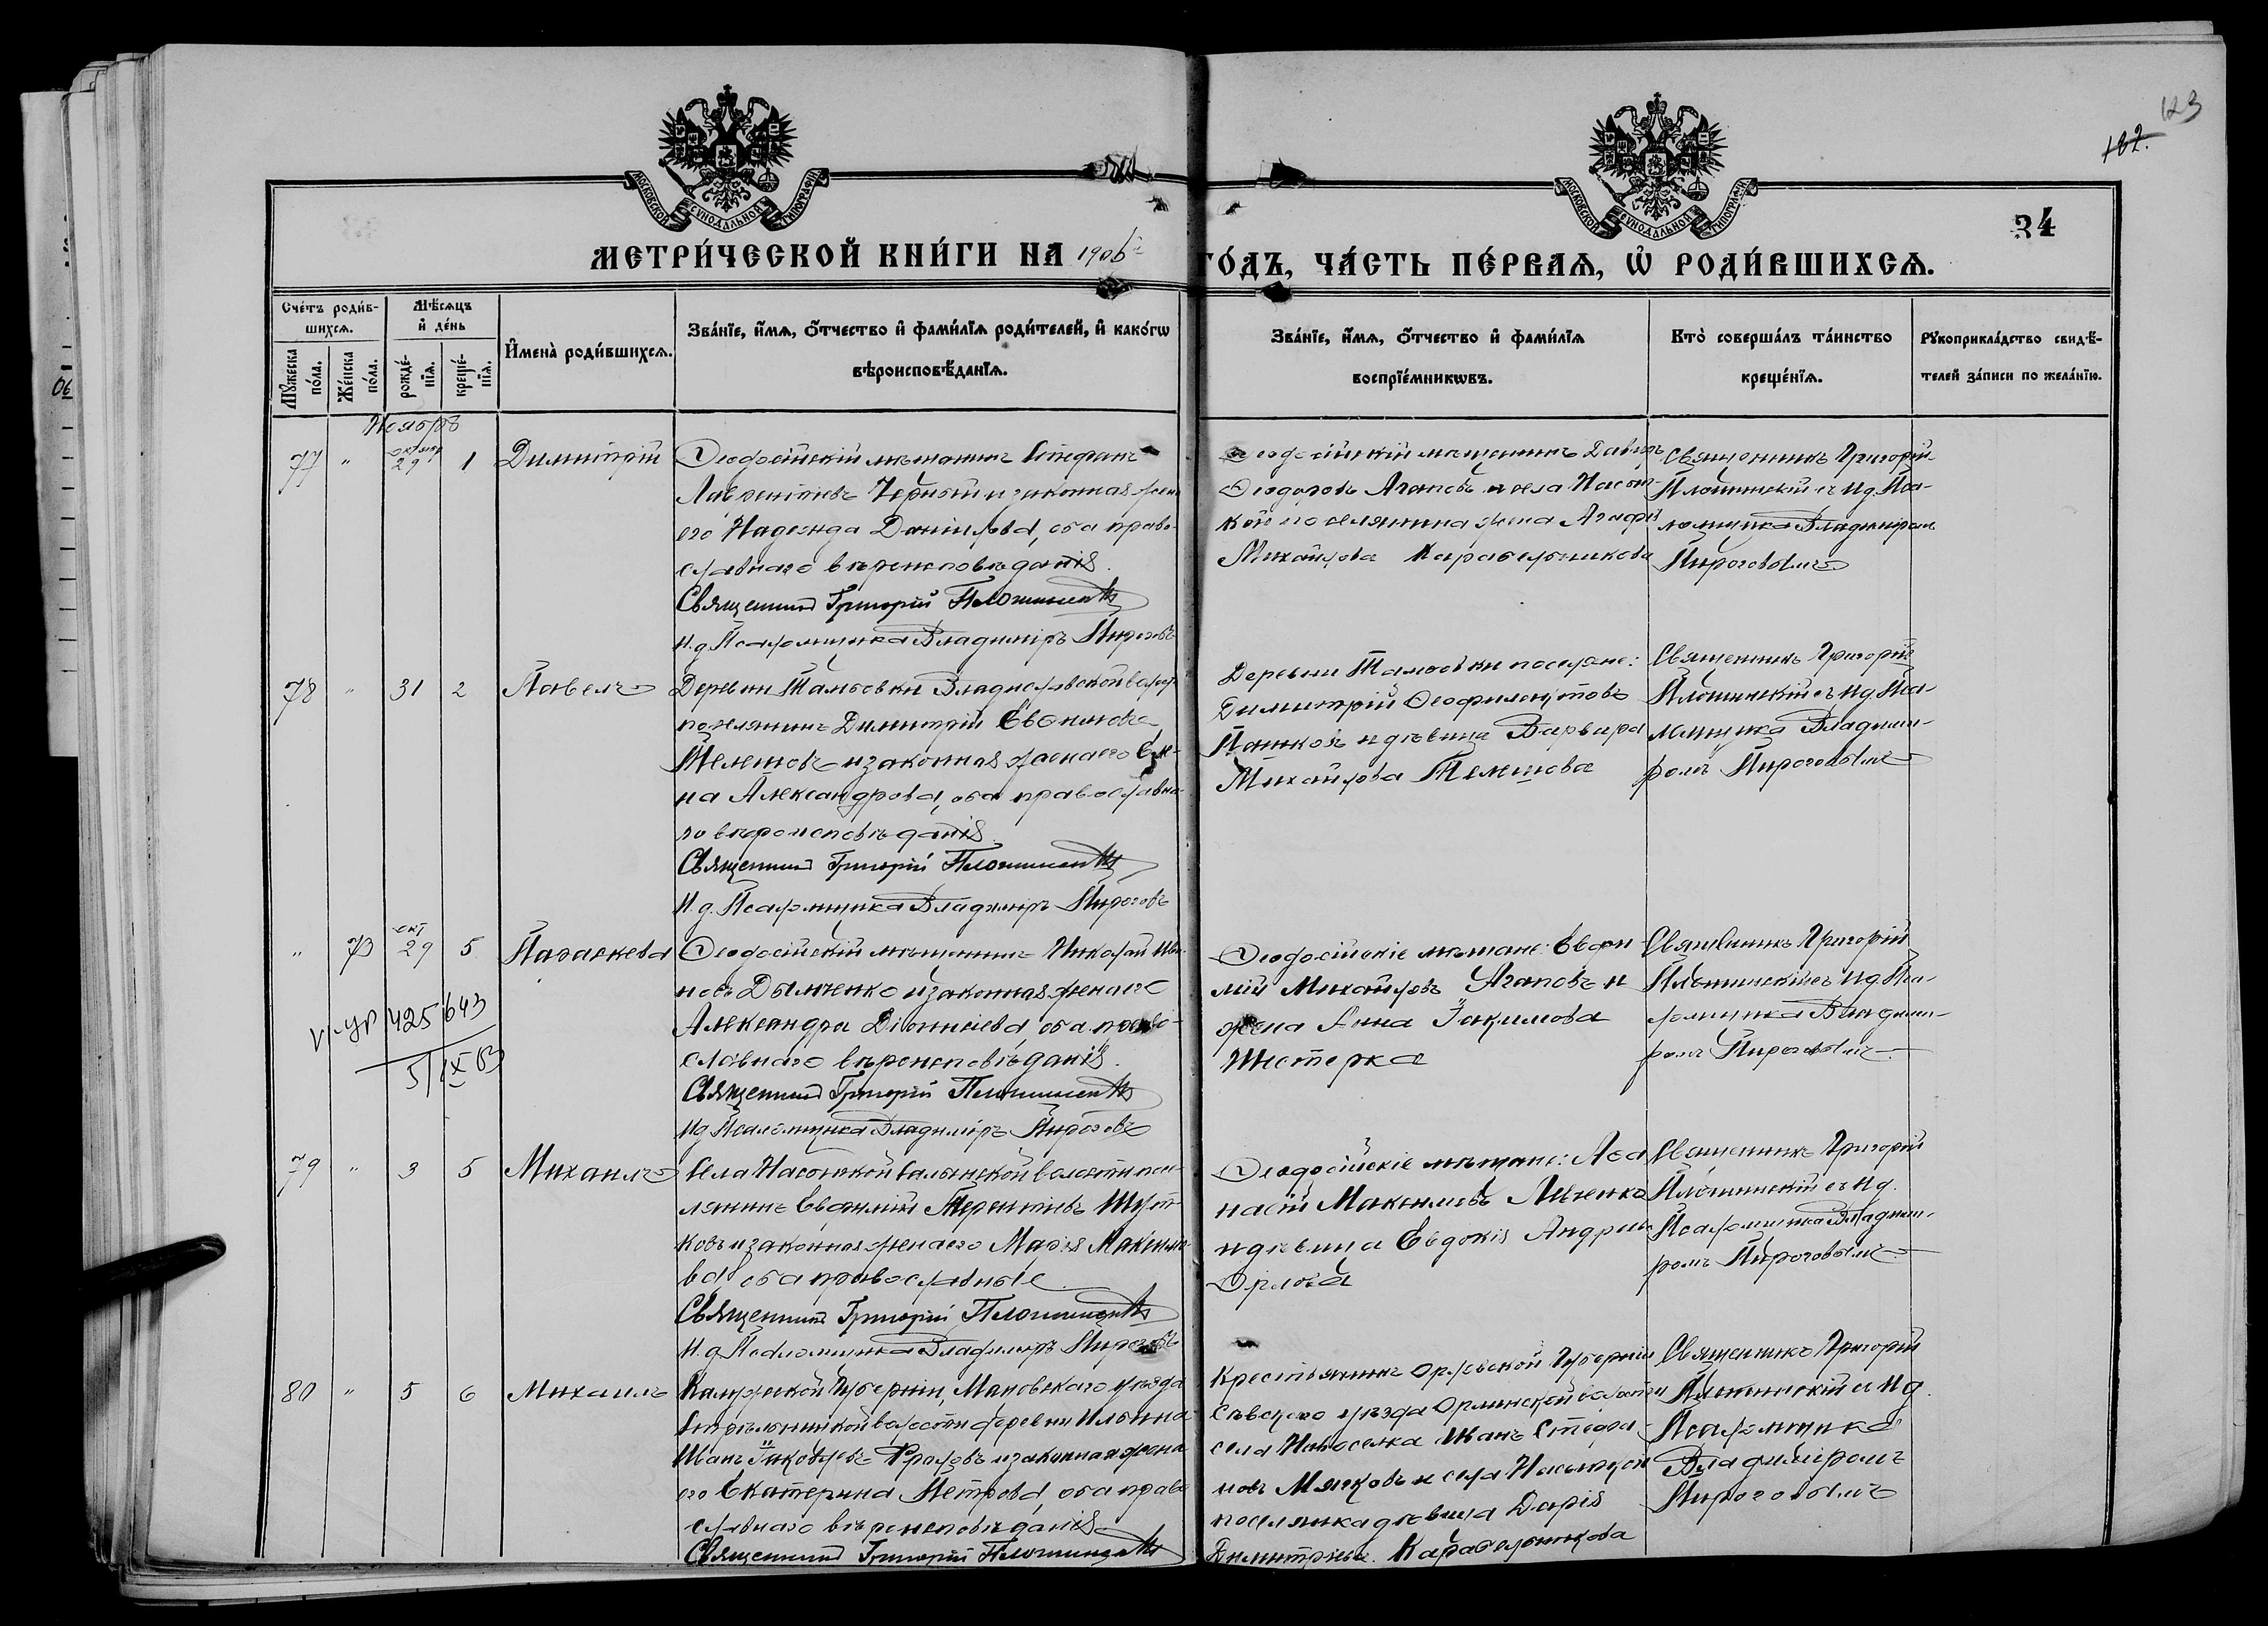 123
102.
34
МОСКОВСКОЙ СѴНОДАЛЬНОЙ ТИПОГРАФІИ
МОСКОВСКОЙ СѴНОДАЛЬНОЙ ТИПОГРАФІИ
МЕТРИ́ЧЕСКОЙ КНИ́ГИ НА 1906 ГО́ДЪ, ЧА́СТЬ ПЕ́РВАѦ, Ѡ҆ РОДИ́ВШИХСѦ.
Сче́тъ роди́в-
шихсѧ.
Мѣ́сѧцъ
и҆ де́нь
Мꙋ́жеска по́ла.
Же́нска по́ла.
рожде́-
нїѧ.
креще́-
нїѧ.
И҆мена̀ роди́вшихсѧ.
Зва́нїе, и҆́мѧ, ѻ҆́тчество и҆ фами́лїѧ роди́телей, и҆ како́гѡ
вѣроисповѣ́данїѧ.
Зва́нїе, и҆́мѧ, ѻ҆́тчество и҆ фами́лїѧ
воспрїе́мникѡвъ.
Кто̀ соверша́лъ та́инство
креще́нїѧ.
Рꙋкоприкла́дство свидѣ́-
телей за́писи по жела́нїю.
Ноябрь
77 " октябр 29 1 Димитрій
Ѳеодосійскій мѣщанинъ Стефанъ
Лаврентіевъ Черный и законная жена
его Надежда Даніилова, оба право-
славнаго вѣроисповѣданія.
Священникъ Григорій Плошинскій
И. д. Псаломщика Владиміръ Пироговъ
Ѳеодосійскій мѣщанинъ Давидъ
Ѳеодоровъ Агаповъ и села Насып-
кой поселянина жена Агафія
Михайлова Карабельникова
Священникъ Григорій
Плошинскій съ и д. Пса-
ломщика Владиміромъ
Пироговымъ
78 " 31 2 Павелъ
Деревни Тамбовки Владиславской волост.
поселянинъ Димитрій Евѳимовъ
Телешовъ и законная жена его Еле-
на Александрова, оба православна-
го вѣроисповѣданія
Священникъ Григорій Плошинскій
И. д. Псаломщика Владиміръ Пироговъ
Деревни Тамбовки поселяне:
Димитрій Ѳеофилактовъ
Панковъ и дѣвица Варвара
Михайлова Телешова
Священникъ Григорій
Плошинскій съ и д. Пса-
ломщика Владими-
ромъ Пироговымъ
" 73 окт 29 5 Параскева
Ѳеодосійскій мѣщанинъ Николай Ива-
новъ Дымченко и законная жена его
Александра Діонисіева, оба право-
славнаго вѣроисповѣданія.
Священникъ Григорій Плошинскій
И д Псаломщика Владиміръ Пироговъ
V-УР 425643
5/IX 63
Ѳеодосійскіе мѣщане: Евфи-
мій Михайловъ Агаповъ и
жена Анна Іакимова
Шестерка
Священникъ Григорій
Плошинскій съ и д. Пса-
ломщика Владими-
ромъ Пироговымъ
79 " 3 5 Михаилъ
Села Насыпкой Салынской волости посе-
лянинъ Евфимій Терентіевъ Шут-
ковъ и законная жена его Марія Максимо-
ва оба православные
Священникъ Григорій Плошинскій
И. д. Псаломщика Владиміръ Пироговъ
Ѳеодосійскіе мѣщане: Аѳа
насій Максимовъ Левченко
и дѣвица Евдокія Андреева
Орлова
Священникъ Григорій
Плошинскій съ и д.
Псаломщика Владими-
ромъ Пироговымъ
80 " 5 6 Михаилъ
Калужской Губерніи, уѣзда
волости деревни Ильина
Иванъ Іаковлевъ Фроловъ и законная жена
его Екатерина Петрова, оба право
славнаго вѣроисповѣданія
Священникъ Григорій Плошинскій
Крестьянинъ Орловской Губерніи
Сѣвскаго уѣзда Орлинской волости
села Новоселка Иванъ Стефа-
новъ Мячковъ и села Насыпкой
поселянка дѣвица Дарія
Димитріева Карабельникова
Священникъ Григорій
Плошинскій съ и д
Псаломщика
Владиміромъ
Пироговымъ
06